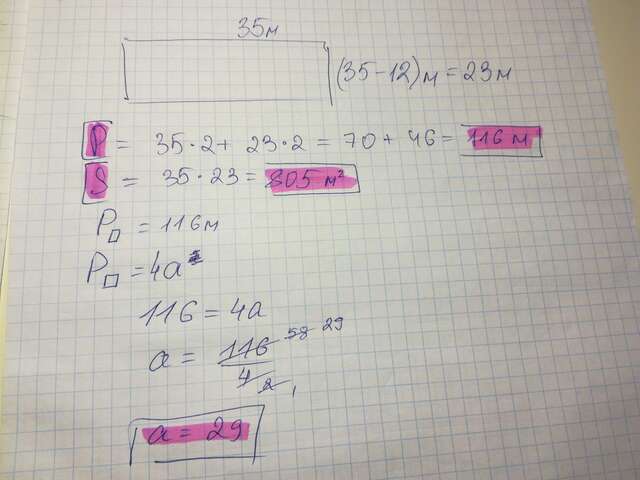 35м
(35-12)м = 23м
P = 35·2+ 23·2 = 70+46= 116 м
S = 35·23= 805 м²
P□ = 116м
P□ = 4a
116 = 4a
a = 116/4 58 29 2 1
a = 29